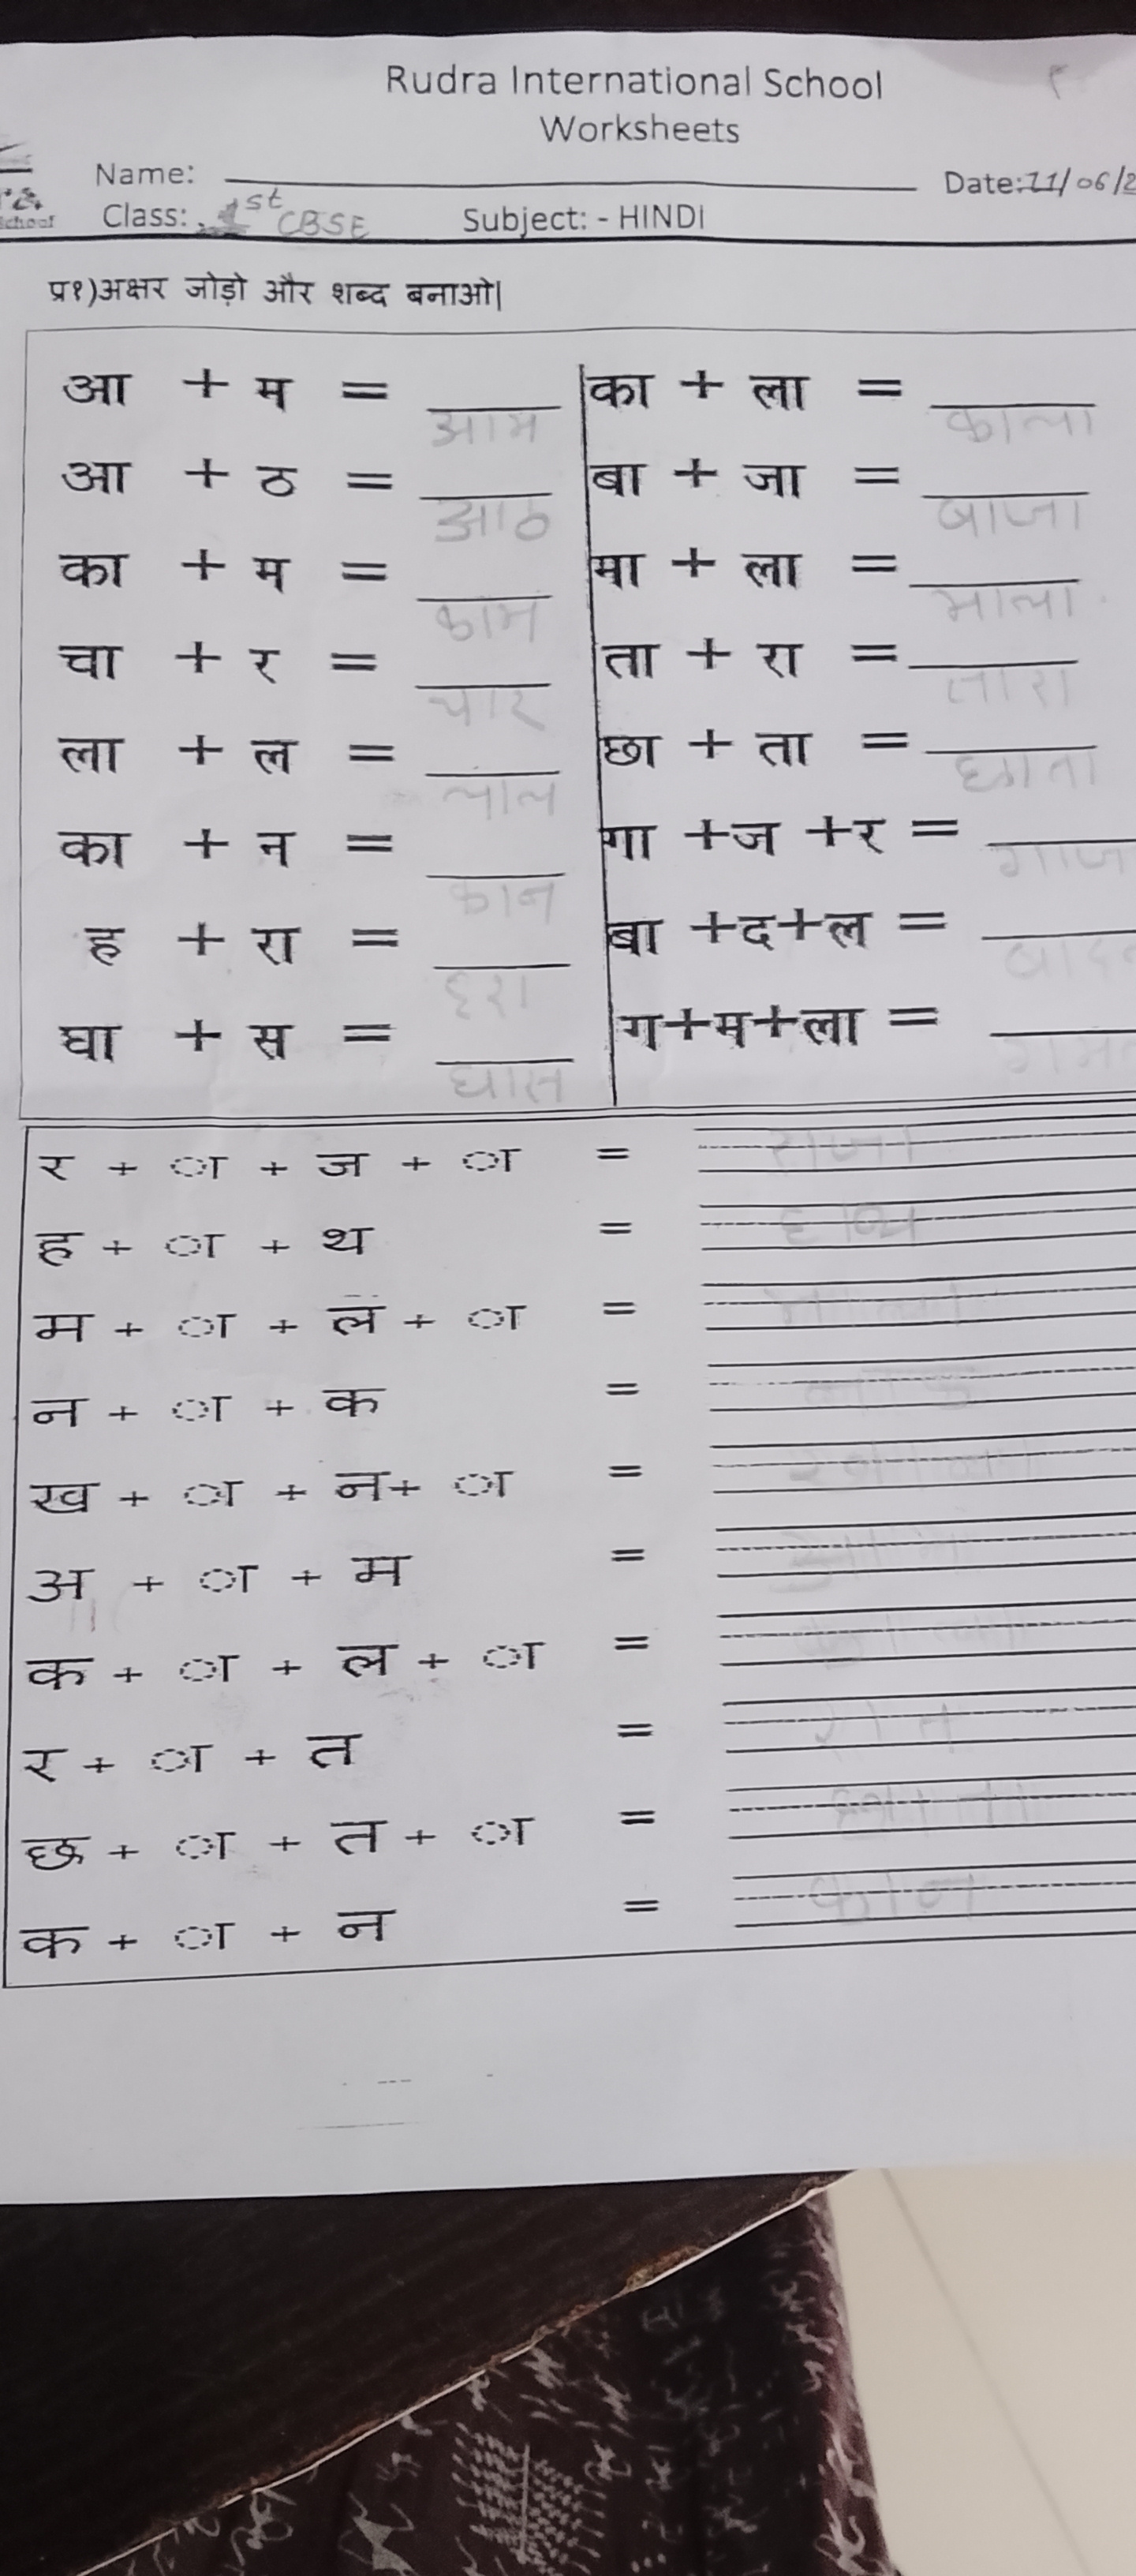 Rudra International School
Worksheets
Name: Date:11/06/2
School Class: 1st CBSE Subject: - HINDI
प्र१)अक्षर जोड़ो और शब्द बनाओ|
आ + म = आम
आ + ठ = आठ
का + म = काम
चा + र = चार
ला + ल = लाल
का + न = कान
ह + रा = हरा
घा + स = घास
का + ला = काला
बा + जा = बाजा
मा + ला = माला
ता + रा = तारा
छा + ता = छाता
गा +ज +र = गाज
बा +द+ल = बाद
ग+म+ला = गम
र + ा + ज + ा = राजा
ह + ा + थ = हाथ
म + ा + ल + ा =
न + ा + क =
ख + ा + न+ ा =
अ + ा + म =
क + ा + ल + ा =
र + ा + त = रात
छ + ा + त + ा =
क + ा + न = कान